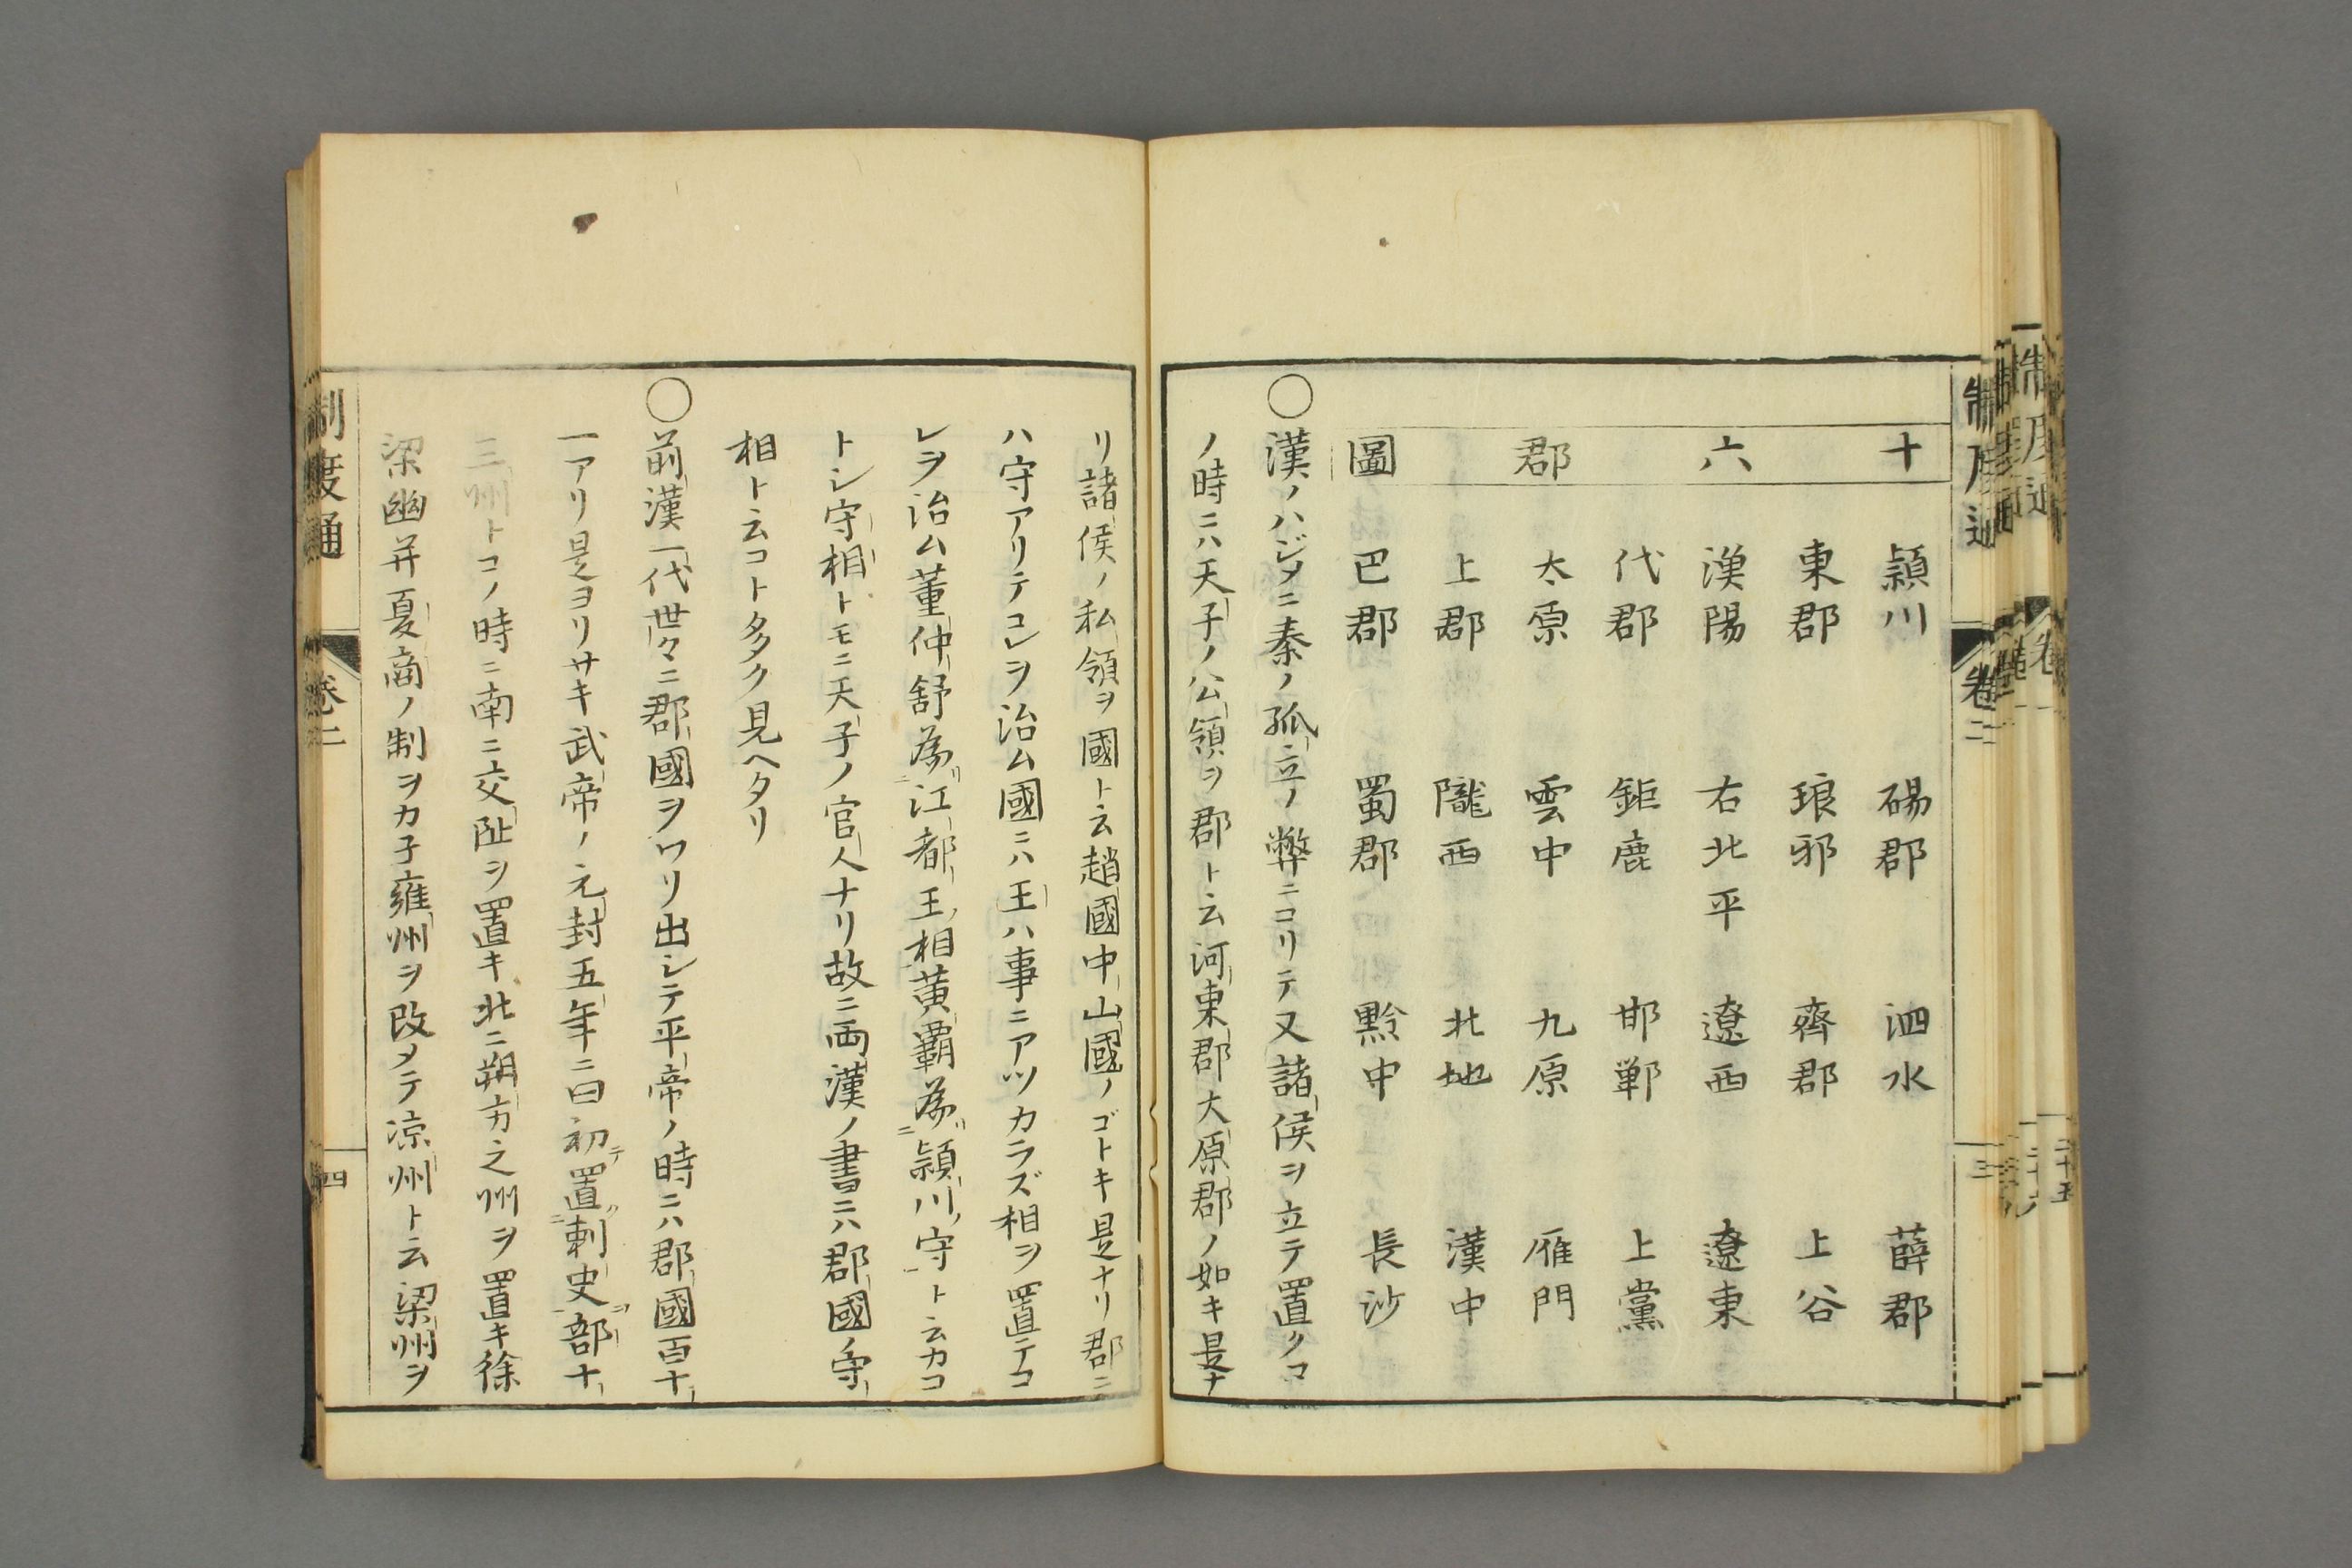 十六郡圖
潁川 碭郡 泗水 薛郡
東郡 琅邪 齊郡 上谷
漢陽 右北平 遼西 遼東
代郡 鉅鹿 邯鄲 上黨
太原 雲中 九原 雁門
上郡 隴西 北地 漢中
巴郡 蜀郡 黔中 長沙
○漢ノハジメニ秦ノ孤立ノ弊ニコリテ又諸侯ヲ立テ置クコ
ノ時ニハ天子ノ公領ヲ郡ト云河東郡大原郡ノ如キ是ナ
制度通 卷二 三
リ諸侯ノ私領ヲ國ト云趙國中山國ノゴトキ是ナリ郡ニ
ハ守アリテコレヲ治ム國ニハ王ハ事ニアツカラズ相ヲ置テコ
レヲ治ム董仲舒為江都王相黄覇為潁川守ト云カコ
トシ守相トモニ天子ノ官人ナリ故ニ両漢ノ書ニハ郡國ノ守
相ト云コト多ク見ヘタリ
○前漢一代世々ニ郡國ヲワリ出シテ平帝ノ時ニハ郡國百十
一アリ是ヨリサキ武帝ノ元封五年ニ曰初テ置刺史部十
三州トコノ時ニ南ニ交阯ヲ置キ北ニ朔方之州ヲ置キ徐
梁幽并夏商ノ制ヲカ子雍州ヲ改メテ凉州ト云梁州ヲ
制度通 卷二 四